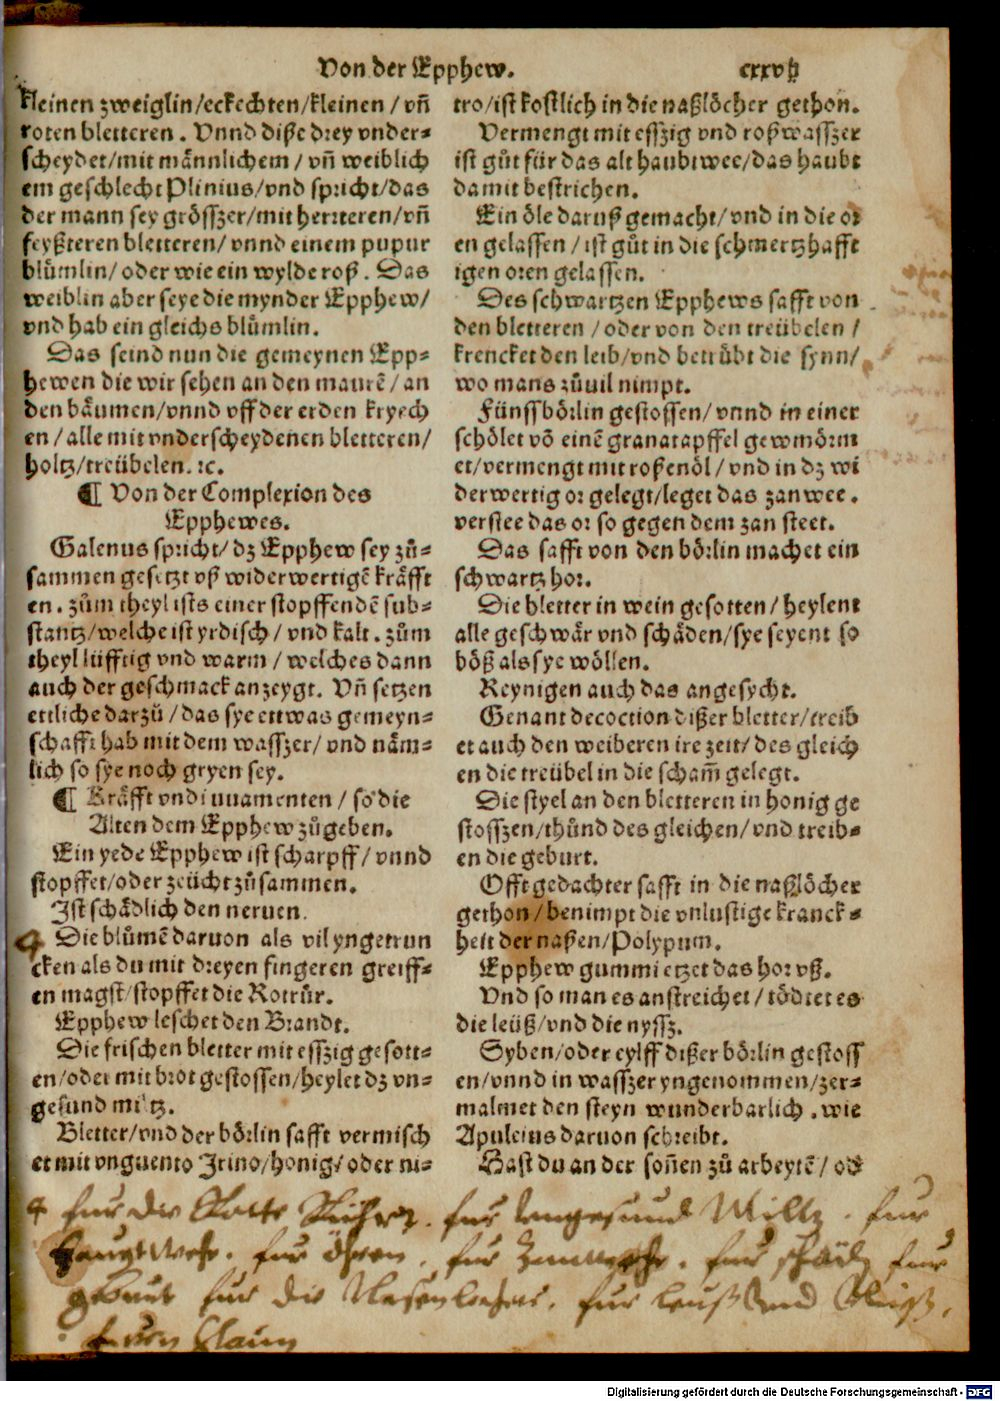 Von der Epphew. cxxvij
kleinen zweiglin/eckechten/kleinen / vñ
roten bletteren . Vnnd diße drey vnder-
scheydet/mit männlichem / vñ weiblich
em geschlecht Plinius/vnd spricht/das
der mann sey grösszer/mit herteren/vñ
feyßteren bletteren/ vnnd einem pupur
blůmlin/ oder wie ein wylde roß . Das
weiblin aber seye die mynder Epphew/
vnd hab ein gleichs blůmlin.
Das seind nun die gemeynen Epp-
hewen die wir sehen an den maurē / an
den bäumen/vnnd vff der erden kryech
en / alle mit vnderscheydenen bletteren/
holtz/treübelen. ꝛc.
¶ Von der Complexion des
Epphewes.
Galenus spricht/ dz Epphew sey zů-
sammen gesetzt vß widerwertigē kräfft
en . zům theyl ists einer stopffendē sub-
stantz/welche ist yrdisch / vnd kalt . zům
theyl lüfftig vnd warm / welches dann
auch der geschmack anzeygt. Vñ setzen
ettliche darzů / das sye ettwas gemeyn-
schafft hab mit dem wasszer/ vnd näm-
lich so sye noch gryen sey.
¶ Kräfft vnd iuuamenten / so die
Alten dem Epphew zůgeben.
Ein yede Epphew ist scharpff/ vnnd
stopffet/oder zeücht zůsammen.
Ist schädlich den neruen.
Die blůmē daruon als vil yngetrun
cken als du mit dreyen fingeren greiff-
en magst/stopffet die Rotrůr.
Epphew leschet den Brandt.
Die frischen bletter mit esszig gesott-
en/oder mit brot gestossen/heylet dz vn-
gesund miltz.
Bletter/vnd der börlin safft vermisch
et mit vnguento Irino/honig/ oder ni-
tro/ist kostlich in die naßlöcher gethon.
Vermengt mit esszig vnd roßwasszer
ist gůt für das alt haubtwee/das haubt
damit bestrichen.
Ein öle daruß gemacht/vnd in die or
en gelassen / ist gůt in die schmertzhafft
igen oren gelassen.
Des schwartzen Epphews safft von
den bletteren / oder von den treübelen /
krencket den leib/vnd betrübt die synn/
wo mans zůuil nimpt.
Fünff börlin gestossen/ vnnd in einer
schölet vō einē granatapffel gewörm
et/vermengt mit roßenöl / vnd in dz wi
derwertig or gelegt/leget das zanwee .
verstee das or so gegen dem zan steet.
Das safft von den börlin machet ein
schwartz hor.
Die bletter in wein gesotten / heylent
alle geschwär vnd schäden/sye seyent so
böß als sye wöllen.
Reynigen auch das angesycht.
Genant decoction dißer bletter/treib
et auch den weiberen ire zeit/ des gleich
en die treübel in die scham̄ gelegt.
Die styel an den bletteren in honig ge
stosszen/thůnd des gleichen/ vnd treib-
en die geburt.
Offt gedachter safft in die naßlöcher
gethon / benimpt die vnlustige kranck-
heit der naßen/Polypum.
Epphew gummi etzet das hor vß.
Vnd so man es anstreichet / tödtet es
die leüß/vnd die nyssz.
Syben/oder eylff dißer börlin gestoss
en/vnnd in wasszer yngenommen/zer-
malmet den steyn wunderbarlich . wie
Apuleius daruon schreibt.
Hast du an der soñen zů arbeytē / od
für die Rotte Rühr. für ungesund Miltz . für
Hauptwehe . für Ohren . für Zanwehe . für schäd für
geburt für die Nasenlöcher . für Leuß vnd